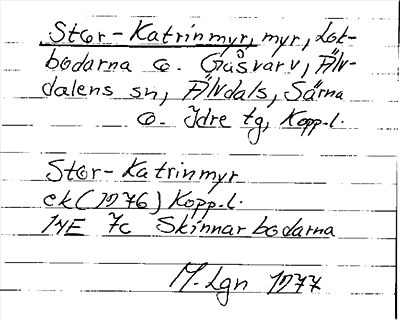 Stor-Katrinmyr, myr, Lot-
bodarna o. Gåsvarv, Älv-
dalens sn, Älvdals, Särna
o. Idre tg, Kopp.l.
Stor-Katrinmyr
ek (1976) Kopp.l.
14E 7c Skinnarbodarna
M.Lgn 1977